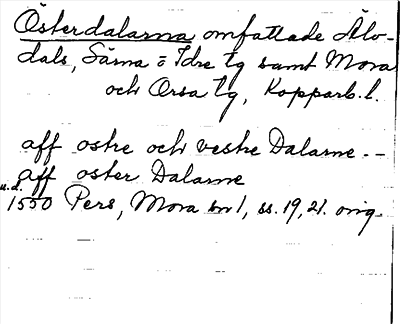 Österdalarna omfattade Älv-
dals, Särna = Idre tg samt Mora
och Orsa tg, Kopparb. l.
aff ostre och vestre Dalarne. -
aff oster Dalarne
u.d.
1550 Pers, Mora sn 1, ss. 19, 21. orig.